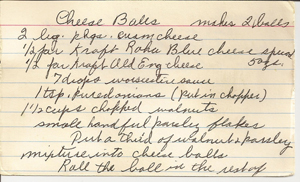 Cheese Balls makes 2 balls
2 lg. pkgs. cream cheese
1/2 jar Kraft Roka Blue cheese spread
5 oz.
1/2 jar Kraft Old Eng cheese
7 drops worcestire sauce
1 tsp. pureed onions (put in chopper)
1 1/2 cups chopped walnuts
small handful parsley flakes
Put a third of walnuts & parsley
mixture into cheese balls
Roll the ball in the rest of